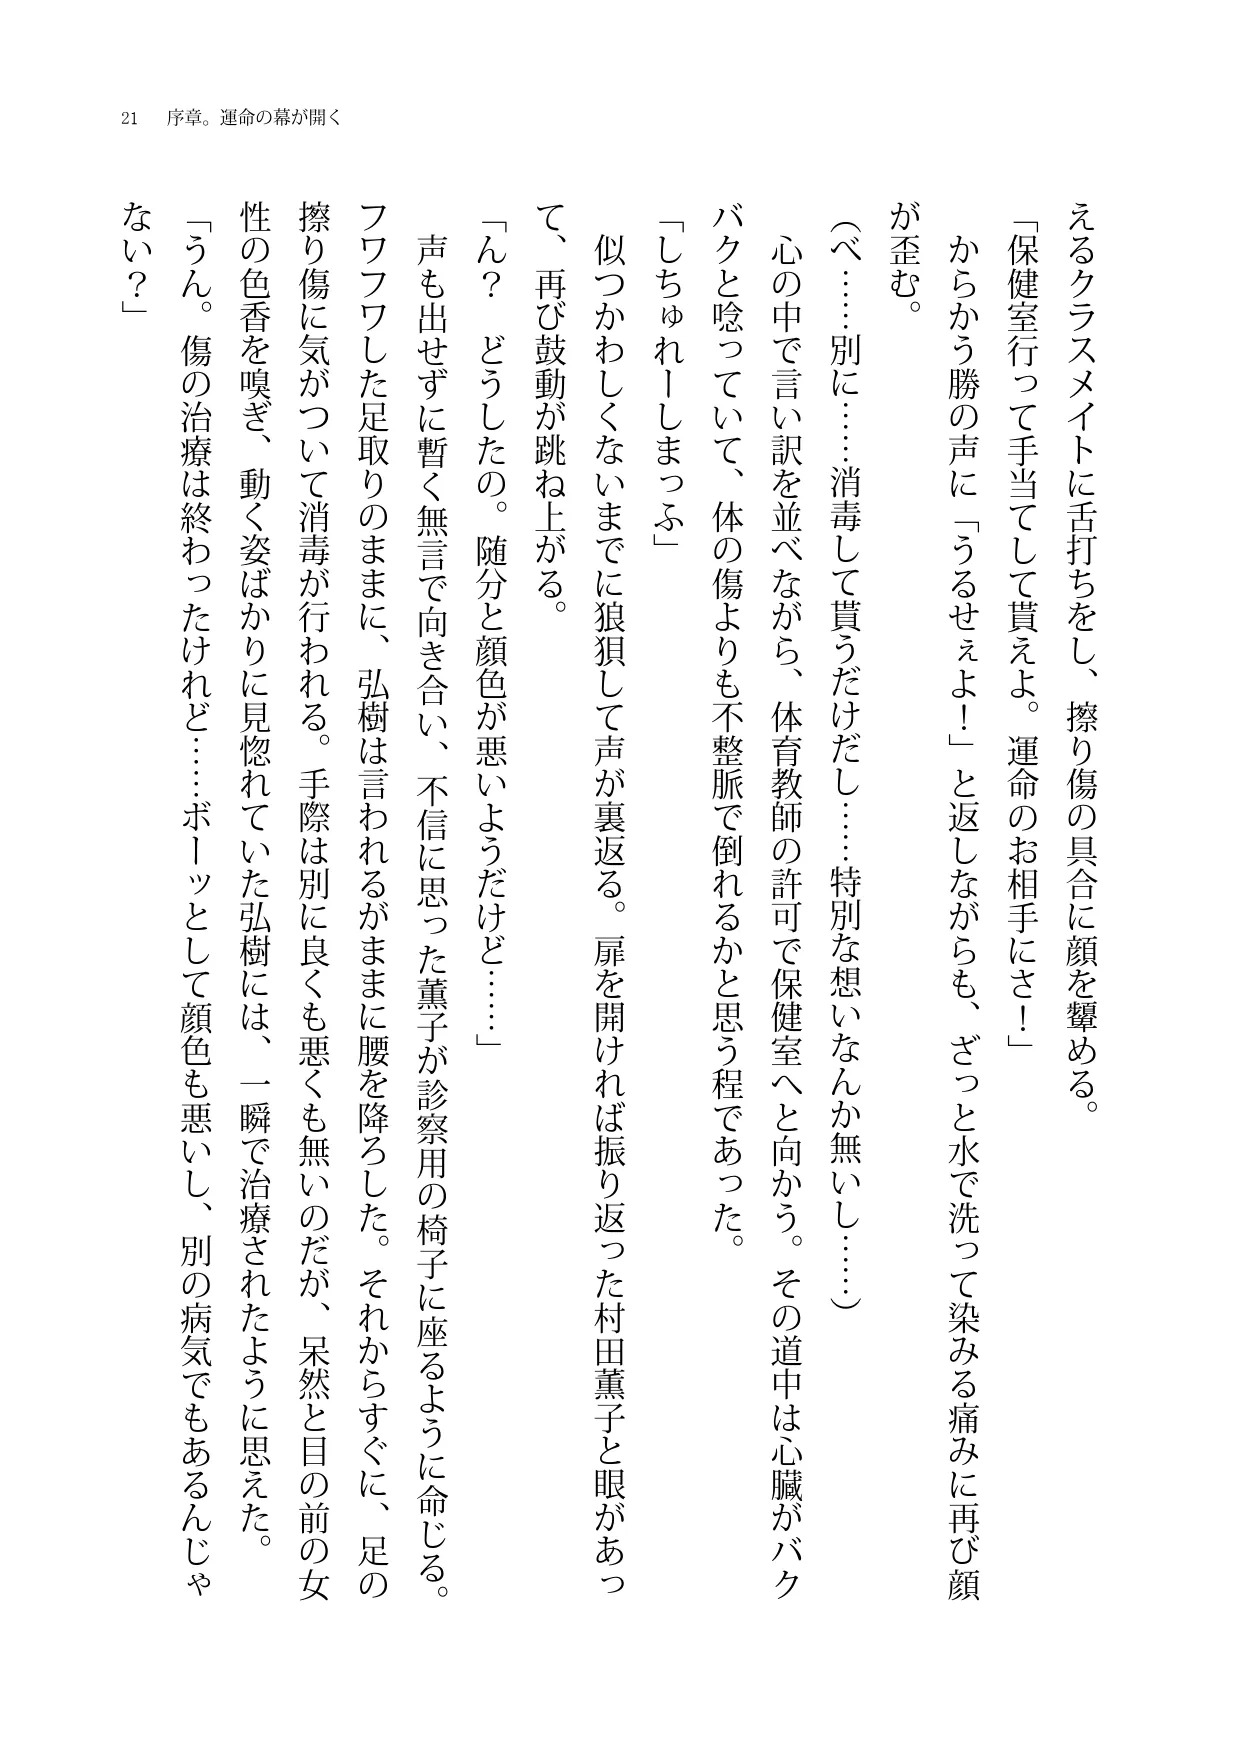 21 序章。運命の幕が開く
えるクラスメイトに舌打ちをし、擦り傷の具合に顔を顰める。
「保健室行って手当てして貰えよ。運命のお相手にさ！」
からかう勝の声に「うるせぇよ！」と返しながらも、ざっと水で洗って染みる痛みに再び顔
が歪む。
（べ……別に……消毒して貰うだけだし……特別な想いなんか無いし……）
心の中で言い訳を並べながら、体育教師の許可で保健室へと向かう。その道中は心臓がバク
バクと唸っていて、体の傷よりも不整脈で倒れるかと思う程であった。
「しちゅれーしまっふ」
似つかわしくないまでに狼狽して声が裏返る。扉を開ければ振り返った村田薫子と眼があっ
て、再び鼓動が跳ね上がる。
「ん？　どうしたの。随分と顔色が悪いようだけど……」
声も出せずに暫く無言で向き合い、不信に思った薫子が診察用の椅子に座るように命じる。
フワフワした足取りのままに、弘樹は言われるがままに腰を降ろした。それからすぐに、足の
擦り傷に気がついて消毒が行われる。手際は別に良くも悪くも無いのだが、呆然と目の前の女
性の色香を嗅ぎ、動く姿ばかりに見惚れていた弘樹には、一瞬で治療されたように思えた。
「うん。傷の治療は終わったけれど……ボーッとして顔色も悪いし、別の病気でもあるんじゃ
ない？」